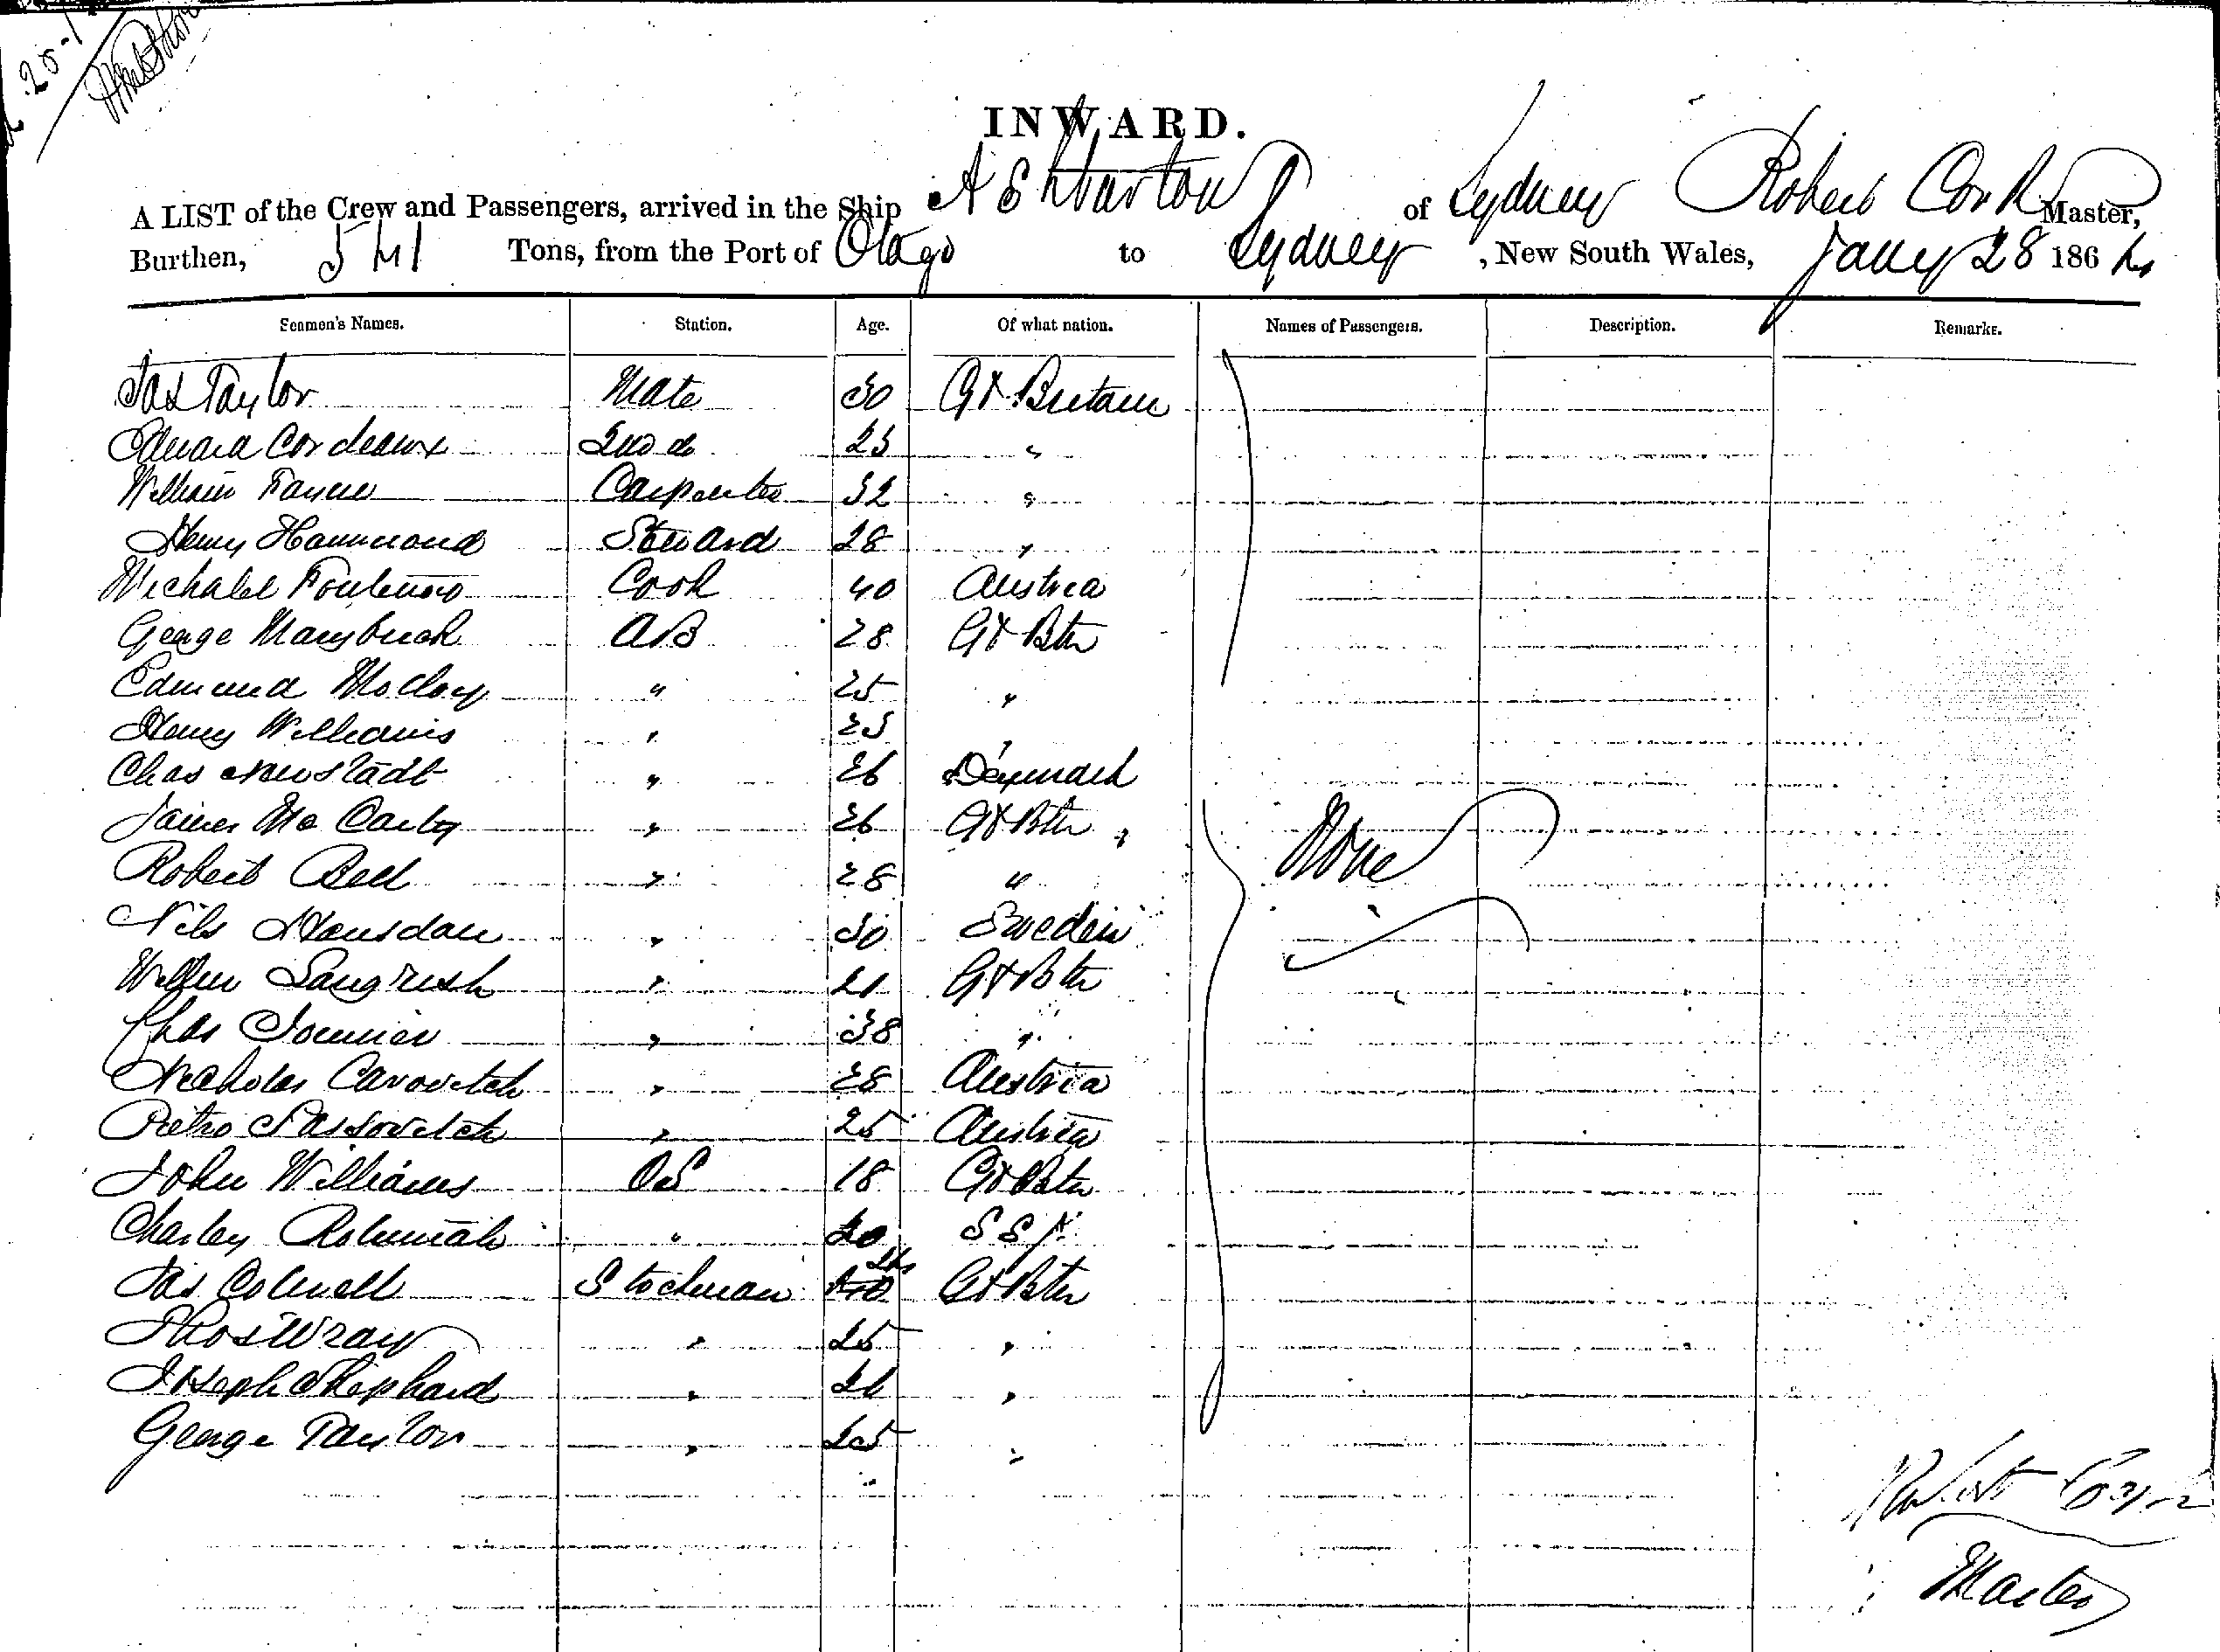 INWARD.
A LIST of the Crew and Passengers, arrived in the Ship of Sydney Robert Master,
Burthen, 541 Tons, from the Port of Otago to Sydney, New South Wales, Jany 28 186
Seamen's Names. Station. Age. Of what nation. Names of Passengers. Description. Remarks.
Jas Taylor Mate 30 Gt Britain
Edward Cordeaux 2nd do 23 "
William Carpenter 32 "
Henry Hammond Steward 28 "
Michalel Cook 40 Austria
George AB 28 Gt Btn
Edmund McCloy " 25 "
Henry Williams " 23 "
Chas Newstadt " 26 Denmark
James Mc Carty " 26 Gt Btn "
Robert Bell " 28 " None
Nils " 30 Sweden
Langrish " 21 Gt Btn
Chas " 38 "
Nicholas Carovitch " 28 Austria
Pietro " 25 Austria
John Williams OS 18 Gt Btn
Charley " 20
Jas Colwell Stockman Gt Btn
Thos Wray " 25 "
Joseph Shephard " "
George Taylor " 25 "
Robert
Master